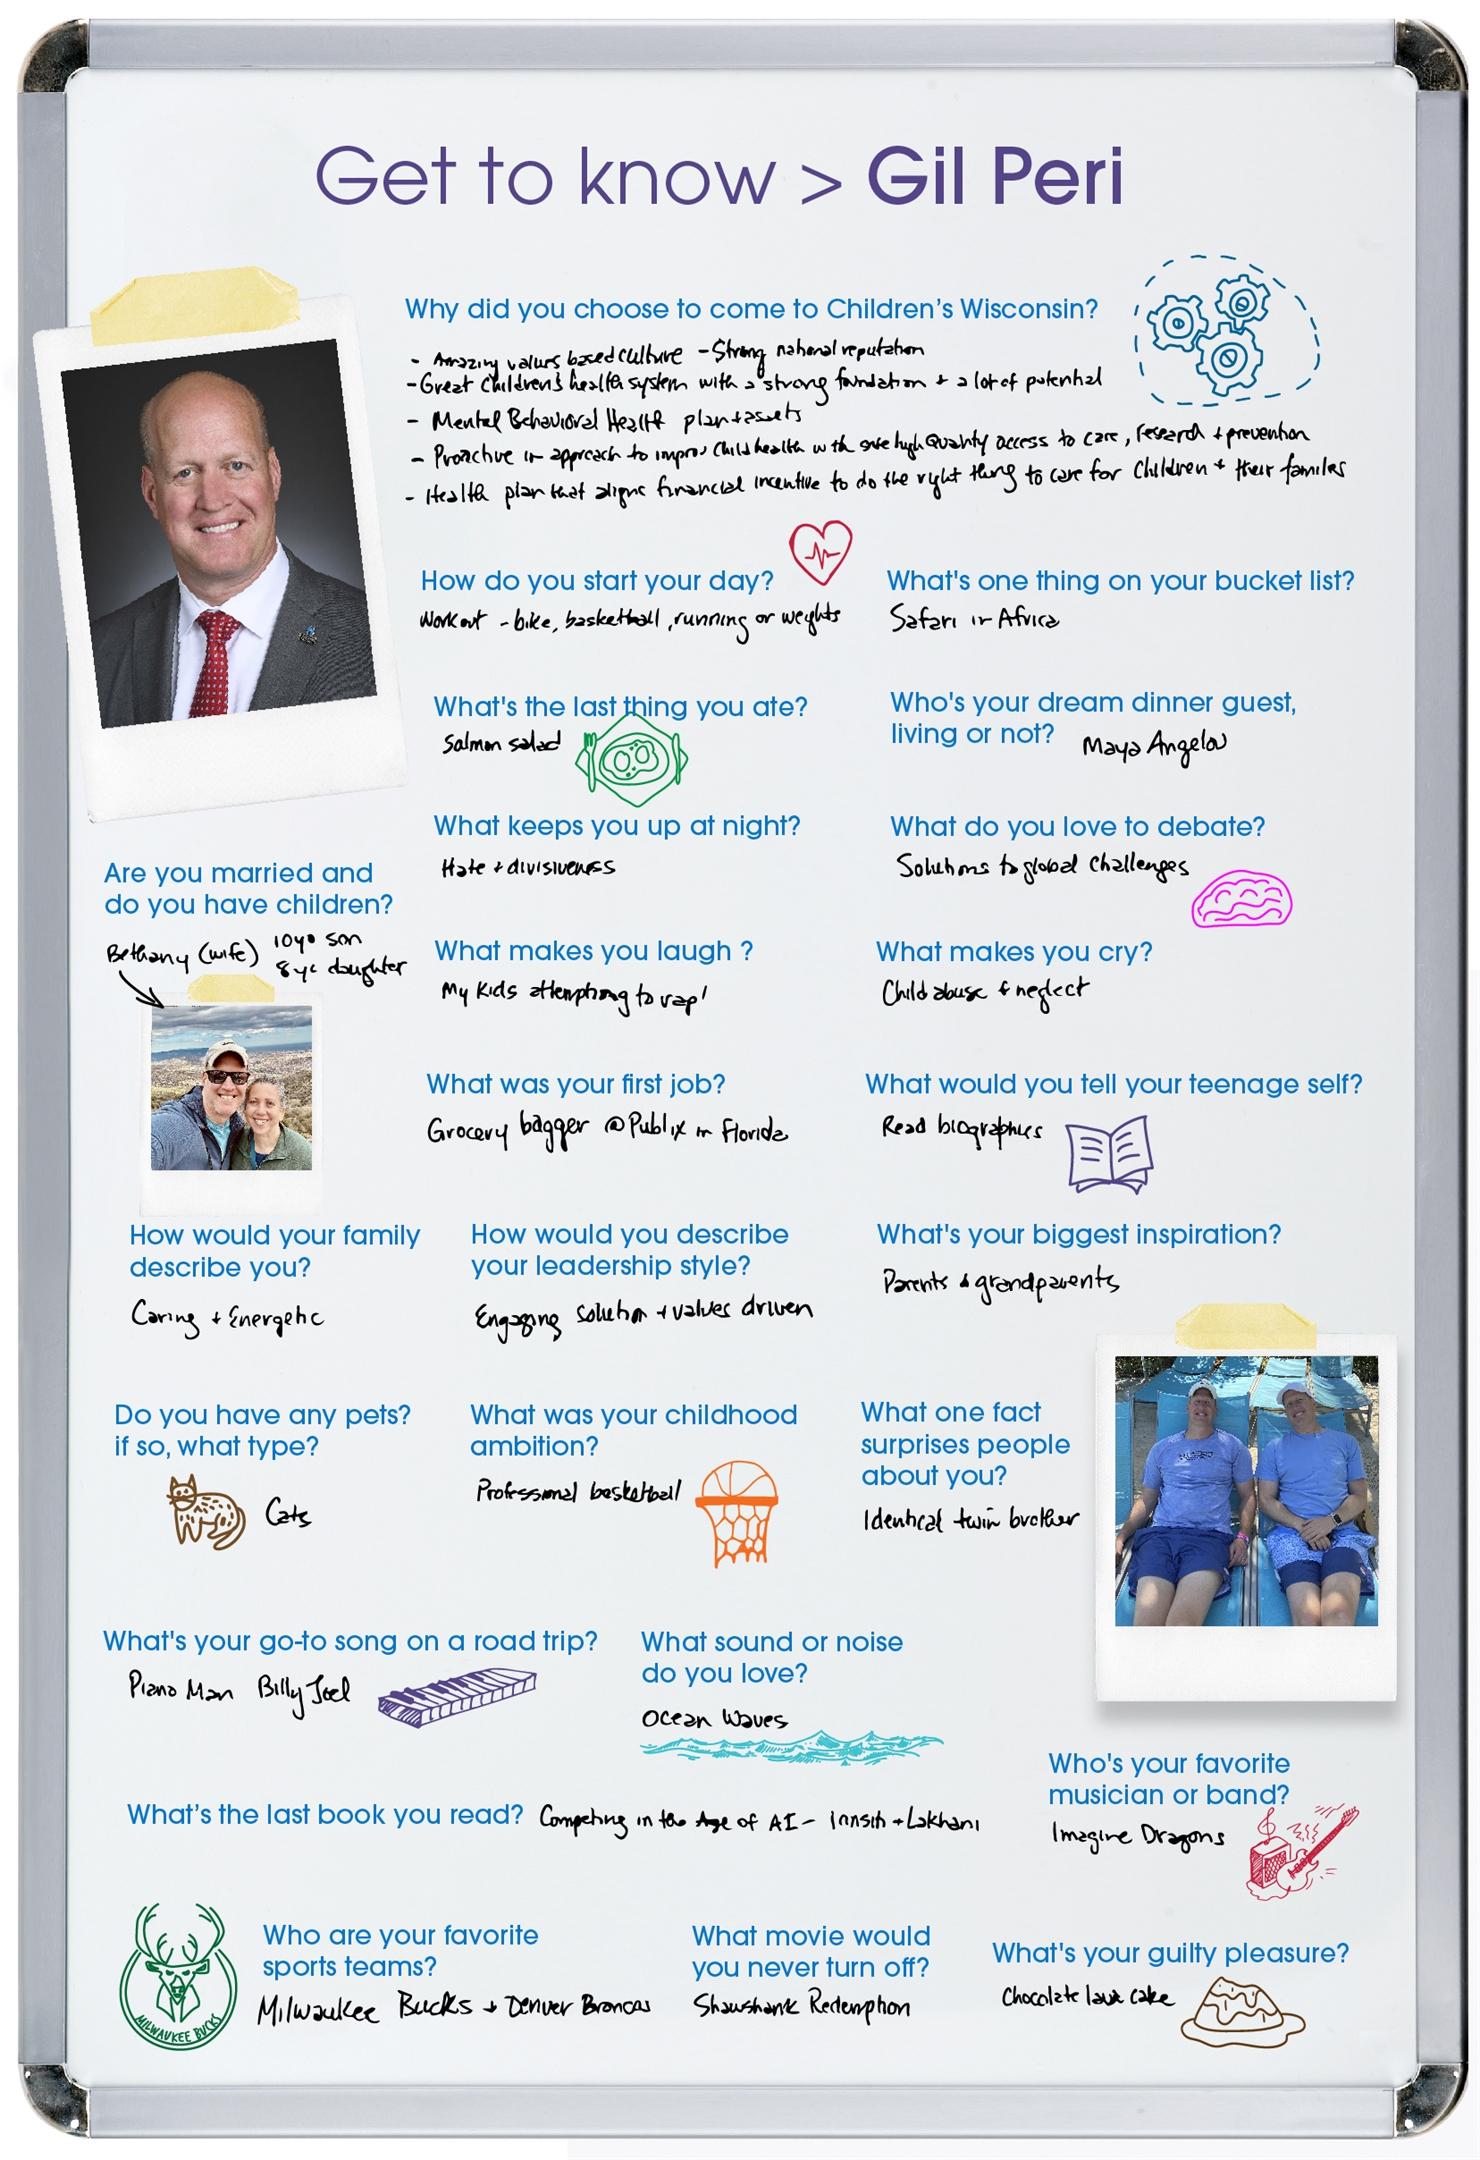 Get to know > Gil Peri
Why did you choose to come to Children's Wisconsin?
- Amazing values based culture - Strong national reputation
- Great children's health system with a strong foundation + a lot of potential
- Mental Behavioral Health plan + assets
- Proactive in approach to improv child health with safe high Quality access to care, research + prevention
- Health plan that aligns financial incentive to do the right thing to care for Children + their families
How do you start your day?
Workout - bike, basketball, running or weights
What's one thing on your bucket list?
Safari in Africa
What's the last thing you ate?
Salmon salad
Who's your dream dinner guest,
living or not? Maya Angelou
What keeps you up at night?
Hate + divisiveness
What do you love to debate?
Solutions to global challenges
Are you married and
do you have children?
Bethany (wife) 10yo son
8yo daughter
What makes you laugh ?
My kids attempting to rap!
What makes you cry?
Child abuse & neglect
What was your first job?
Grocery bagger @ Publix in Florida
What would you tell your teenage self?
Read biographies
How would your family
describe you?
Caring + Energetic
How would you describe
your leadership style?
Engaging solution + values driven
What's your biggest inspiration?
Parents & grandparents
Do you have any pets?
if so, what type?
Cats
What was your childhood
ambition?
Professional basketball
What one fact
surprises people
about you?
Identical twin brother
What's your go-to song on a road trip?
Piano Man Billy Joel
What sound or noise
do you love?
Ocean Waves
Who's your favorite
musician or band?
Imagine Dragons
What's the last book you read? Competing in the Age of AI - Iansiti + Lakhani
MILWAUKEE BUCKS
Who are your favorite
sports teams?
Milwaukee Bucks + Denver Broncos
What movie would
you never turn off?
Shawshank Redemption
What's your guilty pleasure?
Chocolate lava cake